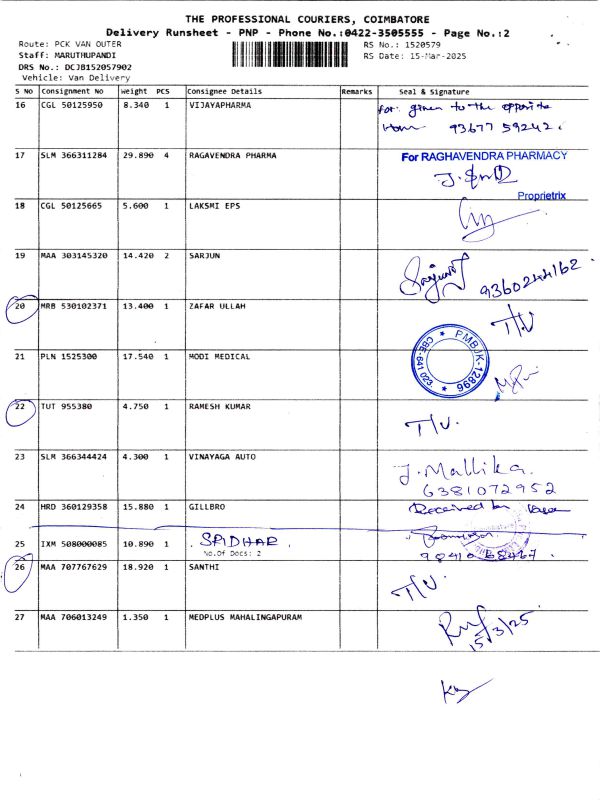 THE PROFESSIONAL COURIERS, COIMBATORE
Delivery Runsheet - PNP - Phone No.:0422-3505555 - Page No.:2
Route: PCK VAN OUTER RS No.: 1520579
Staff: MARUTHUPANDI RS Date: 15-Mar-2025
DRS No.: DCJB152057902
Vehicle: Van Delivery
S No Consignment No Weight PCS Consignee Details Remarks Seal & Signature
16 CGL 50125950 8.340 1 VIJAYAPHARMA
for: given to the opposite
93677 59242.
17 SLM 366311284 29.890 4 RAGAVENDRA PHARMA
For RAGHAVENDRA PHARMACY
Proprietrix
18 CGL 50125665 5.600 1 LAKSMI EPS
19 MAA 303145320 14.420 2 SARJUN
Sarjun
9360244162.
20 MRB 530102371 13.400 1 ZAFAR ULLAH
T/U
21 PLN 1525300 17.540 1 MODI MEDICAL
PMBJK-12896
CBE-641 023.
22 TUT 955380 4.750 1 RAMESH KUMAR
T/U.
23 SLM 366344424 4.300 1 VINAYAGA AUTO
J. Mallika.
6381072952
24 HRD 360129358 15.880 1 GILLBRO
Received by
25 IXM 508000085 10.890 1 SRIDHAR.
No.Of Docs: 2
26 MAA 707767629 18.920 1 SANTHI
T/U.
27 MAA 706013249 1.350 1 MEDPLUS MAHALINGAPURAM
15/3/25